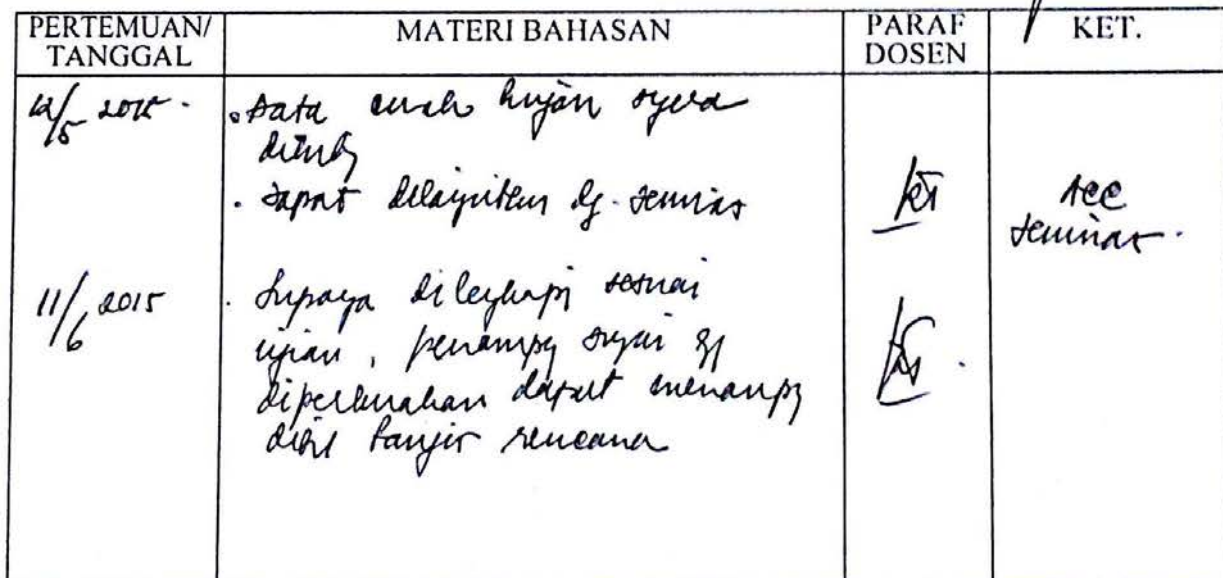 PERTEMUAN/ TANGGAL
MATERI BAHASAN
PARAF DOSEN
KET.
12/5 2015 .
. Data curah hujan
. Dapat dilanjutkan dg. seminar
acc
seminar .
11/6 2015
. Supaya dilengkapi sesuai
ujian , penampg sungai yg
diperlukan dapat menampg
debit banjir rencana